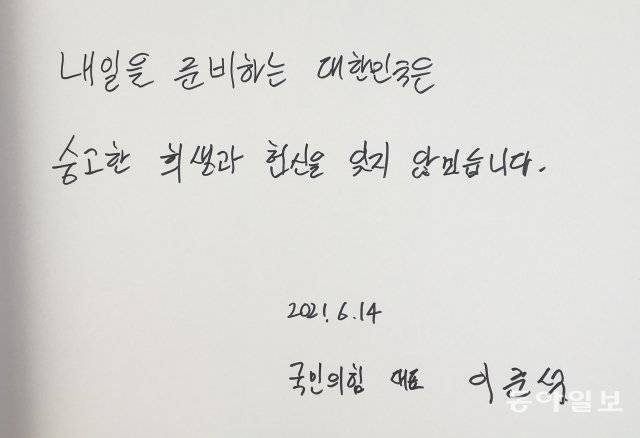 내일을 준비하는 대한민국은
숭고한 희생과 헌신을 잊지 않민습니다.
2021. 6. 14
국민의힘 대표 이준석
동아일보